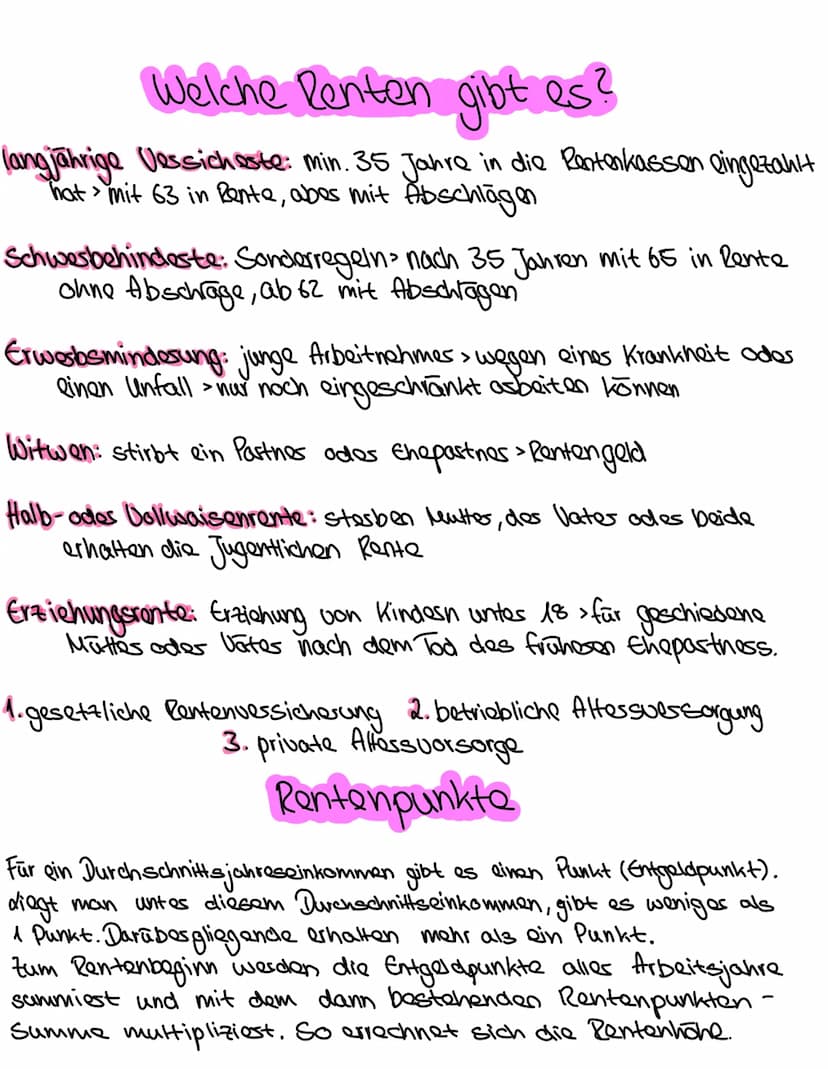 Welche Renten gibt es?
langjährige Versicherte: min. 35 Jahre in die Rentenkassen eingezahlt
hat > mit 63 in Rente, aber mit Abschlägen
Schwerbehinderte: Sonderregeln > nach 35 Jahren mit 65 in Rente
ohne Abschläge, ab 62 mit Abschlägen
Erwerbsminderung: junge Arbeitnehmer > wegen einer Krankheit oder
einen Unfall > nur noch eingeschränkt arbeiten können
Witwen: stirbt ein Partner oder Ehepartner > Rentengeld
Halb- oder Vollwaisenrente: sterben Mutter, der Vater oder beide
erhalten die Jugentlichen Rente
Erziehungsrente: Erziehung von Kindern unter 18 > für geschiedene
Mütter oder Väter nach dem Tod des früheren Ehepartners.
1. gesetzliche Rentenversicherung 2. betriebliche Altersversorgung
3. private Altersvorsorge
Rentenpunkte
Für ein Durchschnittsjahreseinkommen gibt es einen Punkt (Entgeldpunkt).
liegt man unter diesem Durchschnittseinkommen, gibt es weniger als
1 Punkt. Darüberliegende erhalten mehr als ein Punkt.
Zum Rentenbeginn werden die Entgeldpunkte aller Arbeitsjahre
summiert und mit dem dann bestehenden Rentenpunkten-
Summe multipliziert. So errechnet sich die Rentenhöhe.